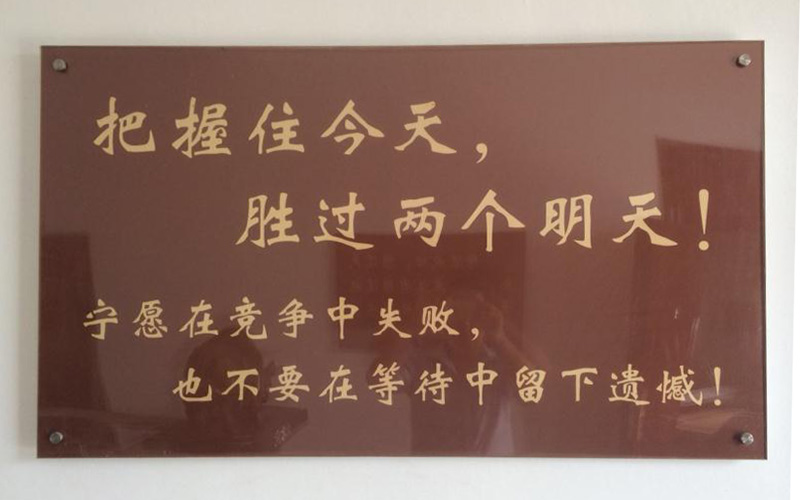 把握住今天，
胜过两个明天！
宁愿在竞争中失败，
也不要在等待中留下遗憾！